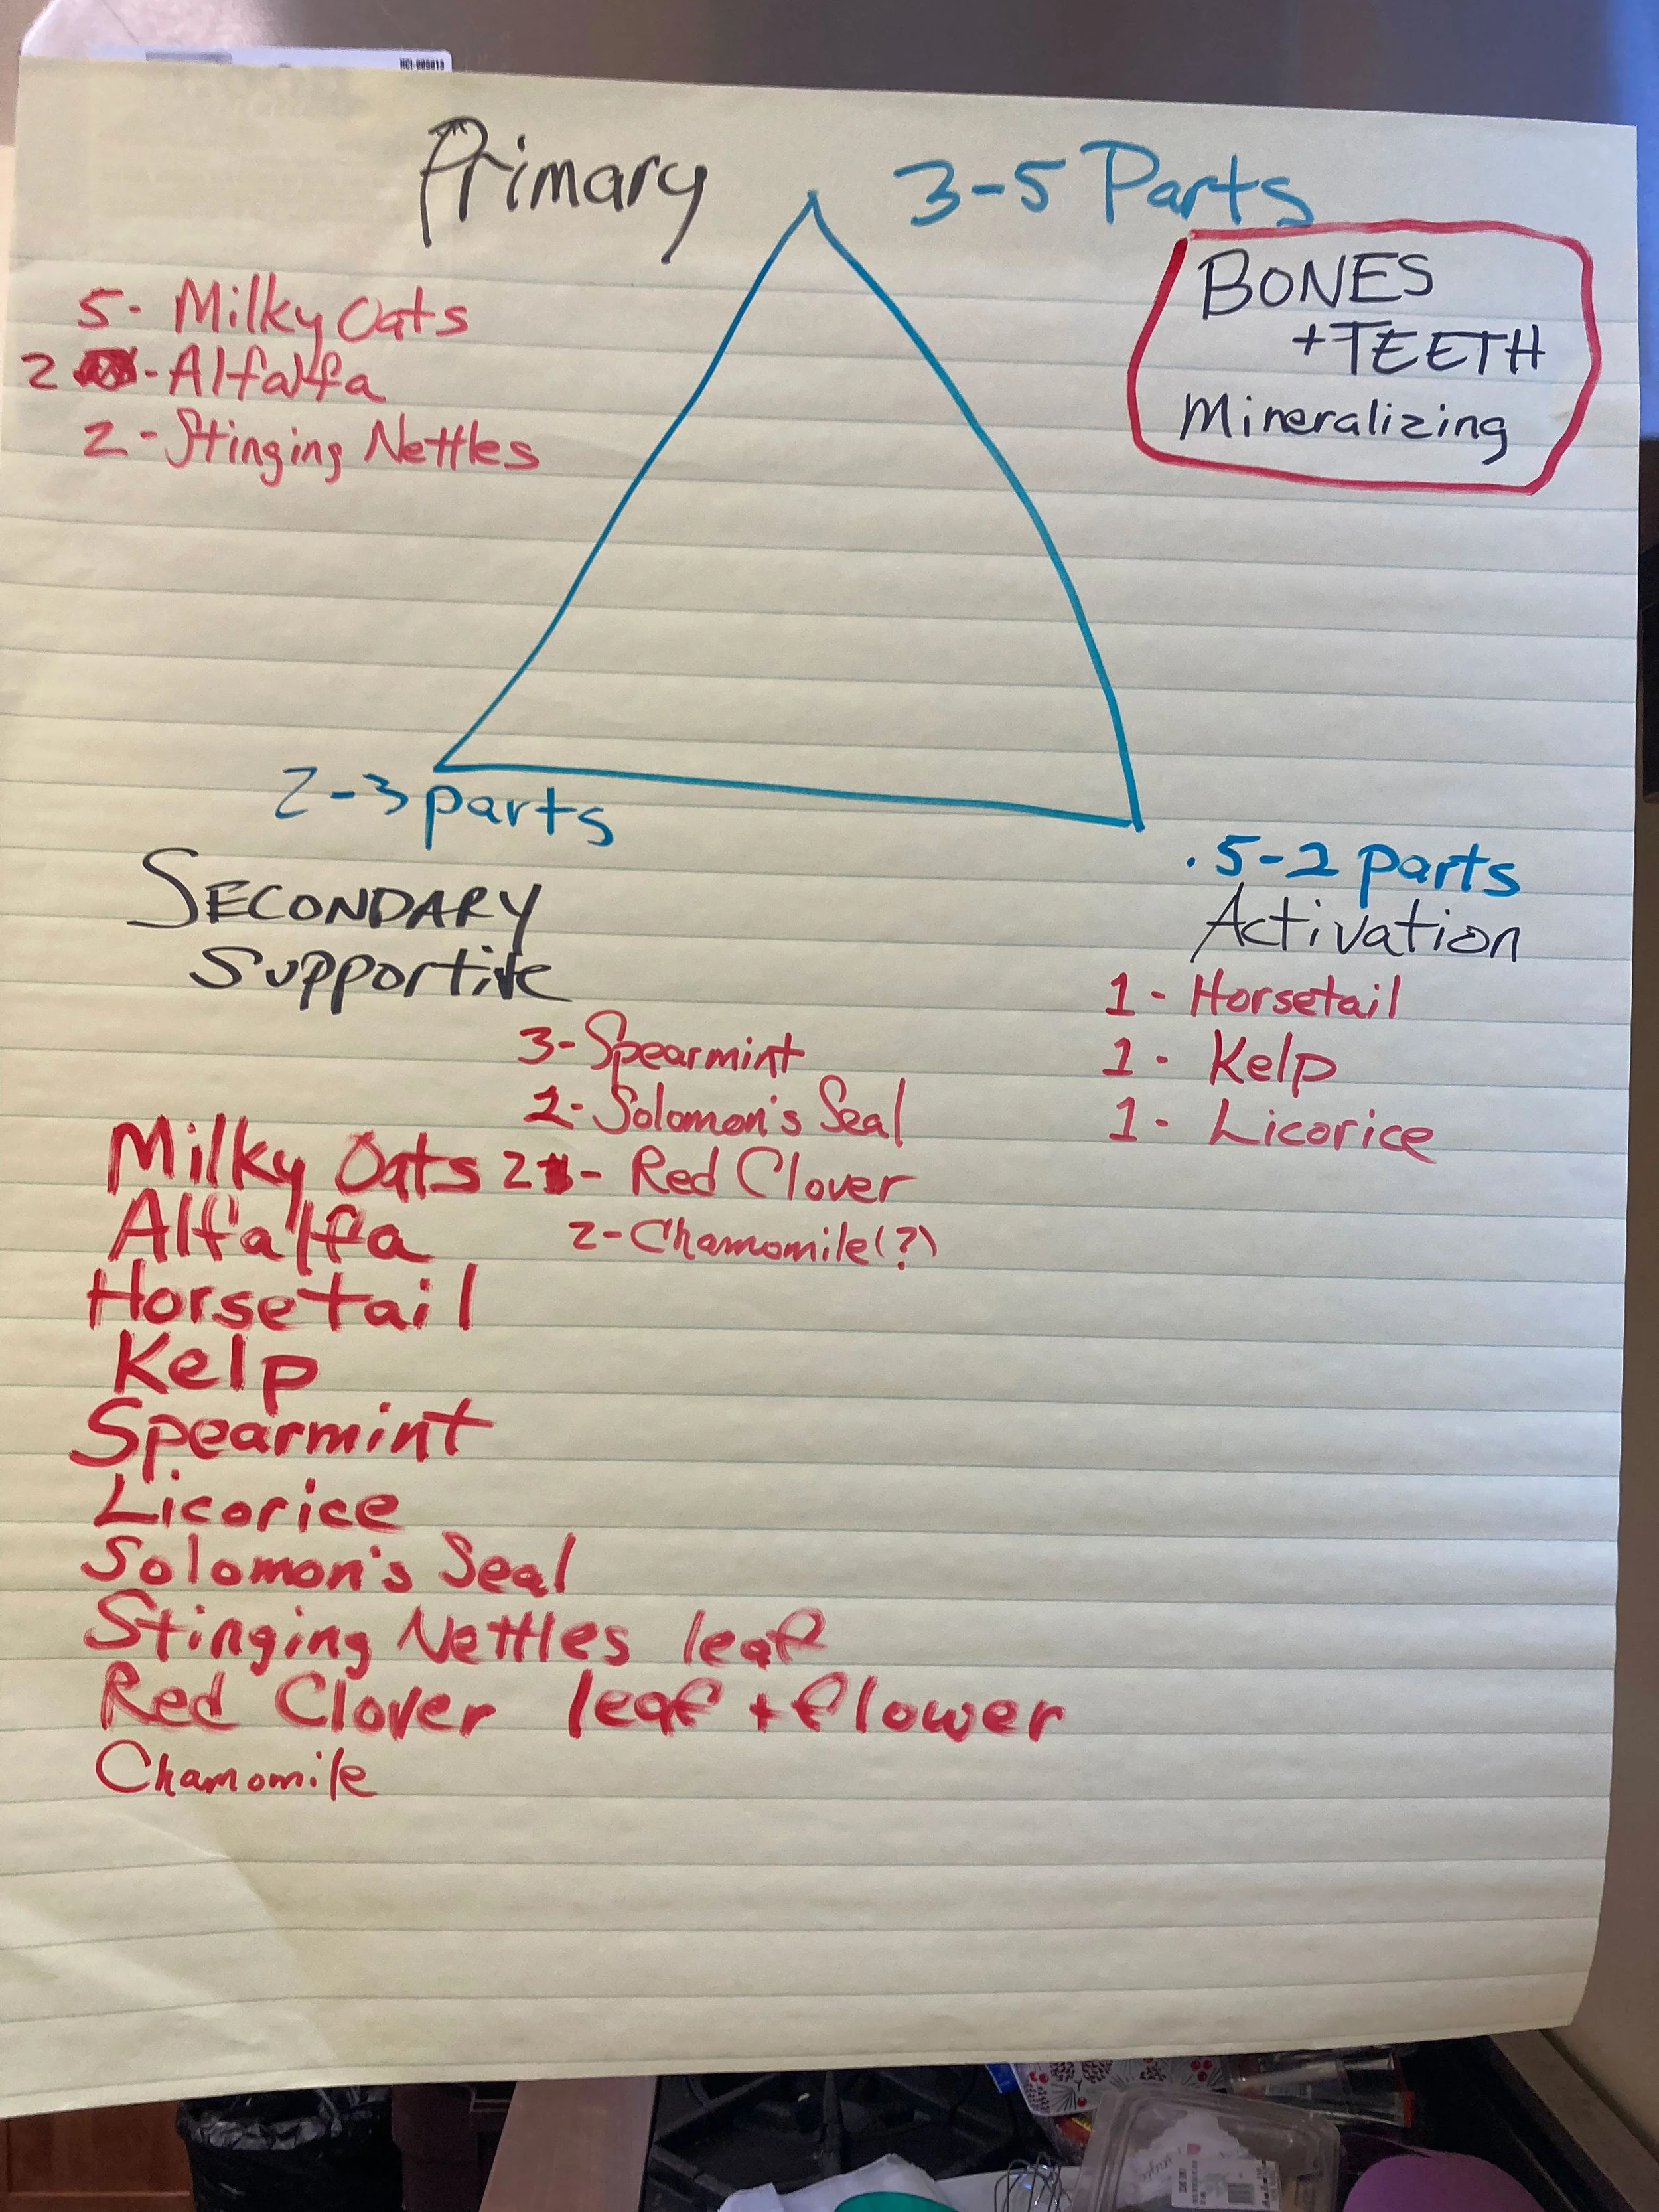 HCI-000013
Primary
3-5 Parts
BONES
+TEETH
Mineralizing
5- Milky Oats
2 - Alfalfa
2 - Stinging Nettles
2-3 parts
SECONDARY
Supportive
.5-2 parts
Activation
1 - Horsetail
1 - Kelp
1 - Licorice
3- Spearmint
2- Solomon's Seal
2 - Red Clover
2- Chamomile(?)
Milky Oats
Alfalfa
Horsetail
Kelp
Spearmint
Licorice
Solomon's Seal
Stinging Nettles leaf
Red Clover leaf + flower
Chamomile